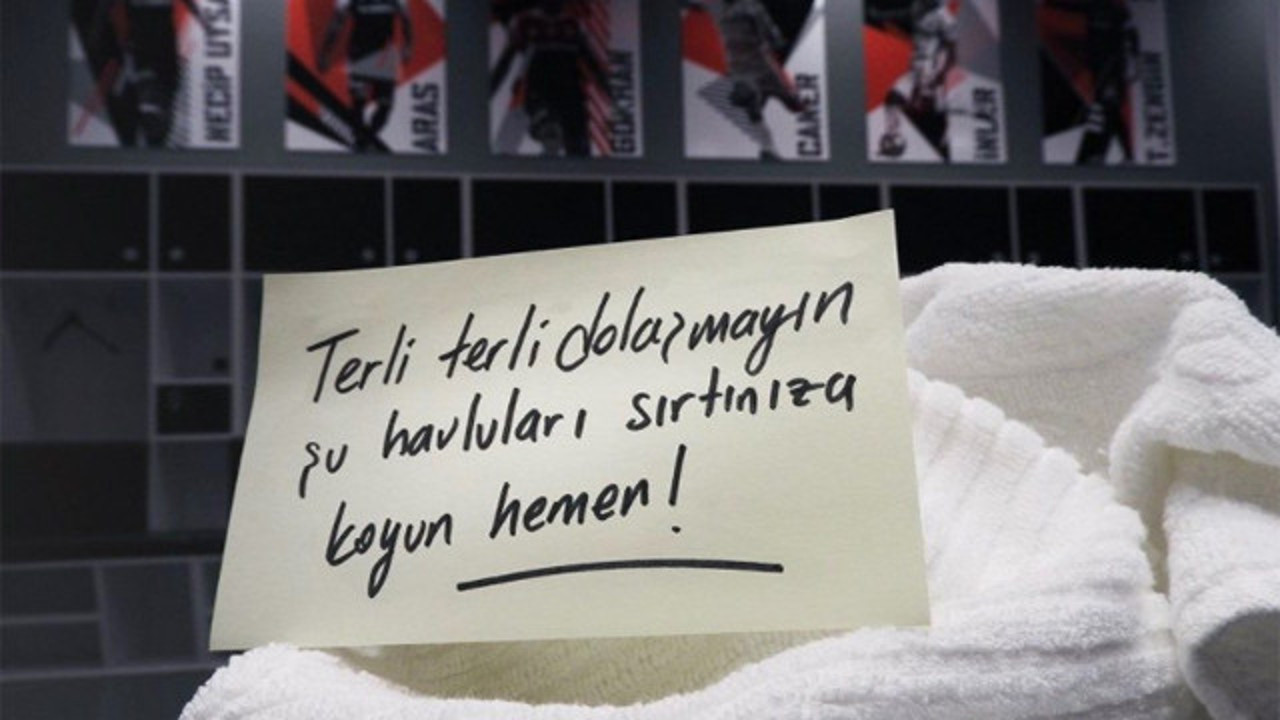 NECIP UYSA
ARAS
GÖKHAN
CANER
İNLER
T.ZENGİN
Terli terli dolaşmayın
şu havluları sırtınıza
koyun hemen!